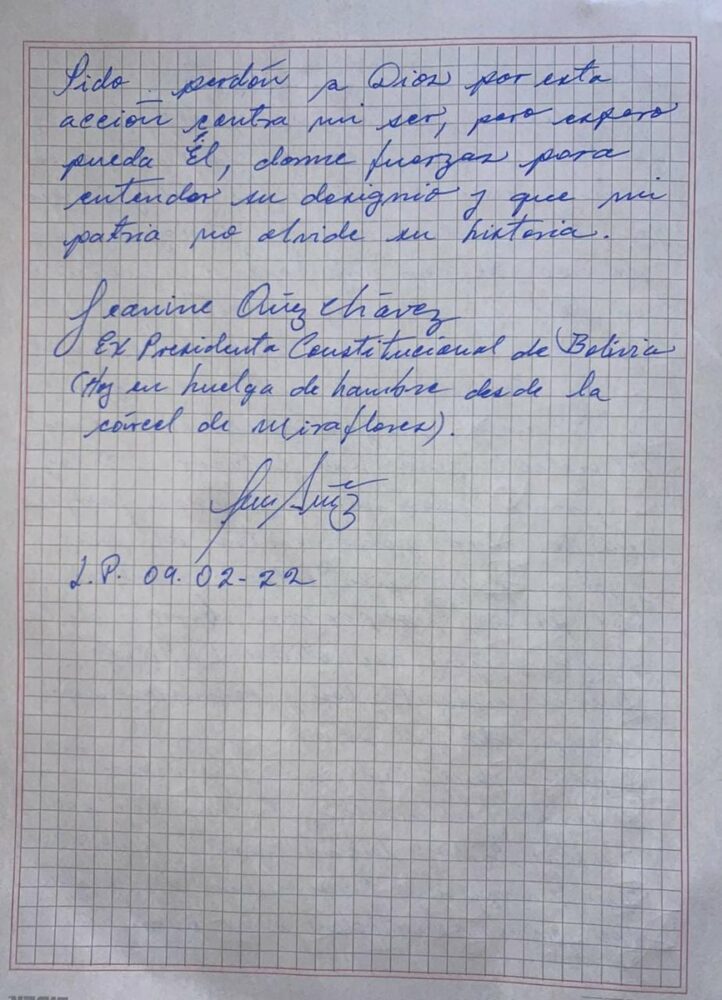 Pido perdón a Dios por esta
acción contra mi ser, pero espero
pueda Él, darme fuerzas para
entender su designio y que mi
patria no olvide su historia.
Jeanine Áñez Chávez
Ex Presidenta Constitucional de Bolivia
(Hoy en huelga de hambre desde la
cárcel de Miraflores).
L.P. 09.02-22